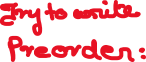 Try to write
Preorder: